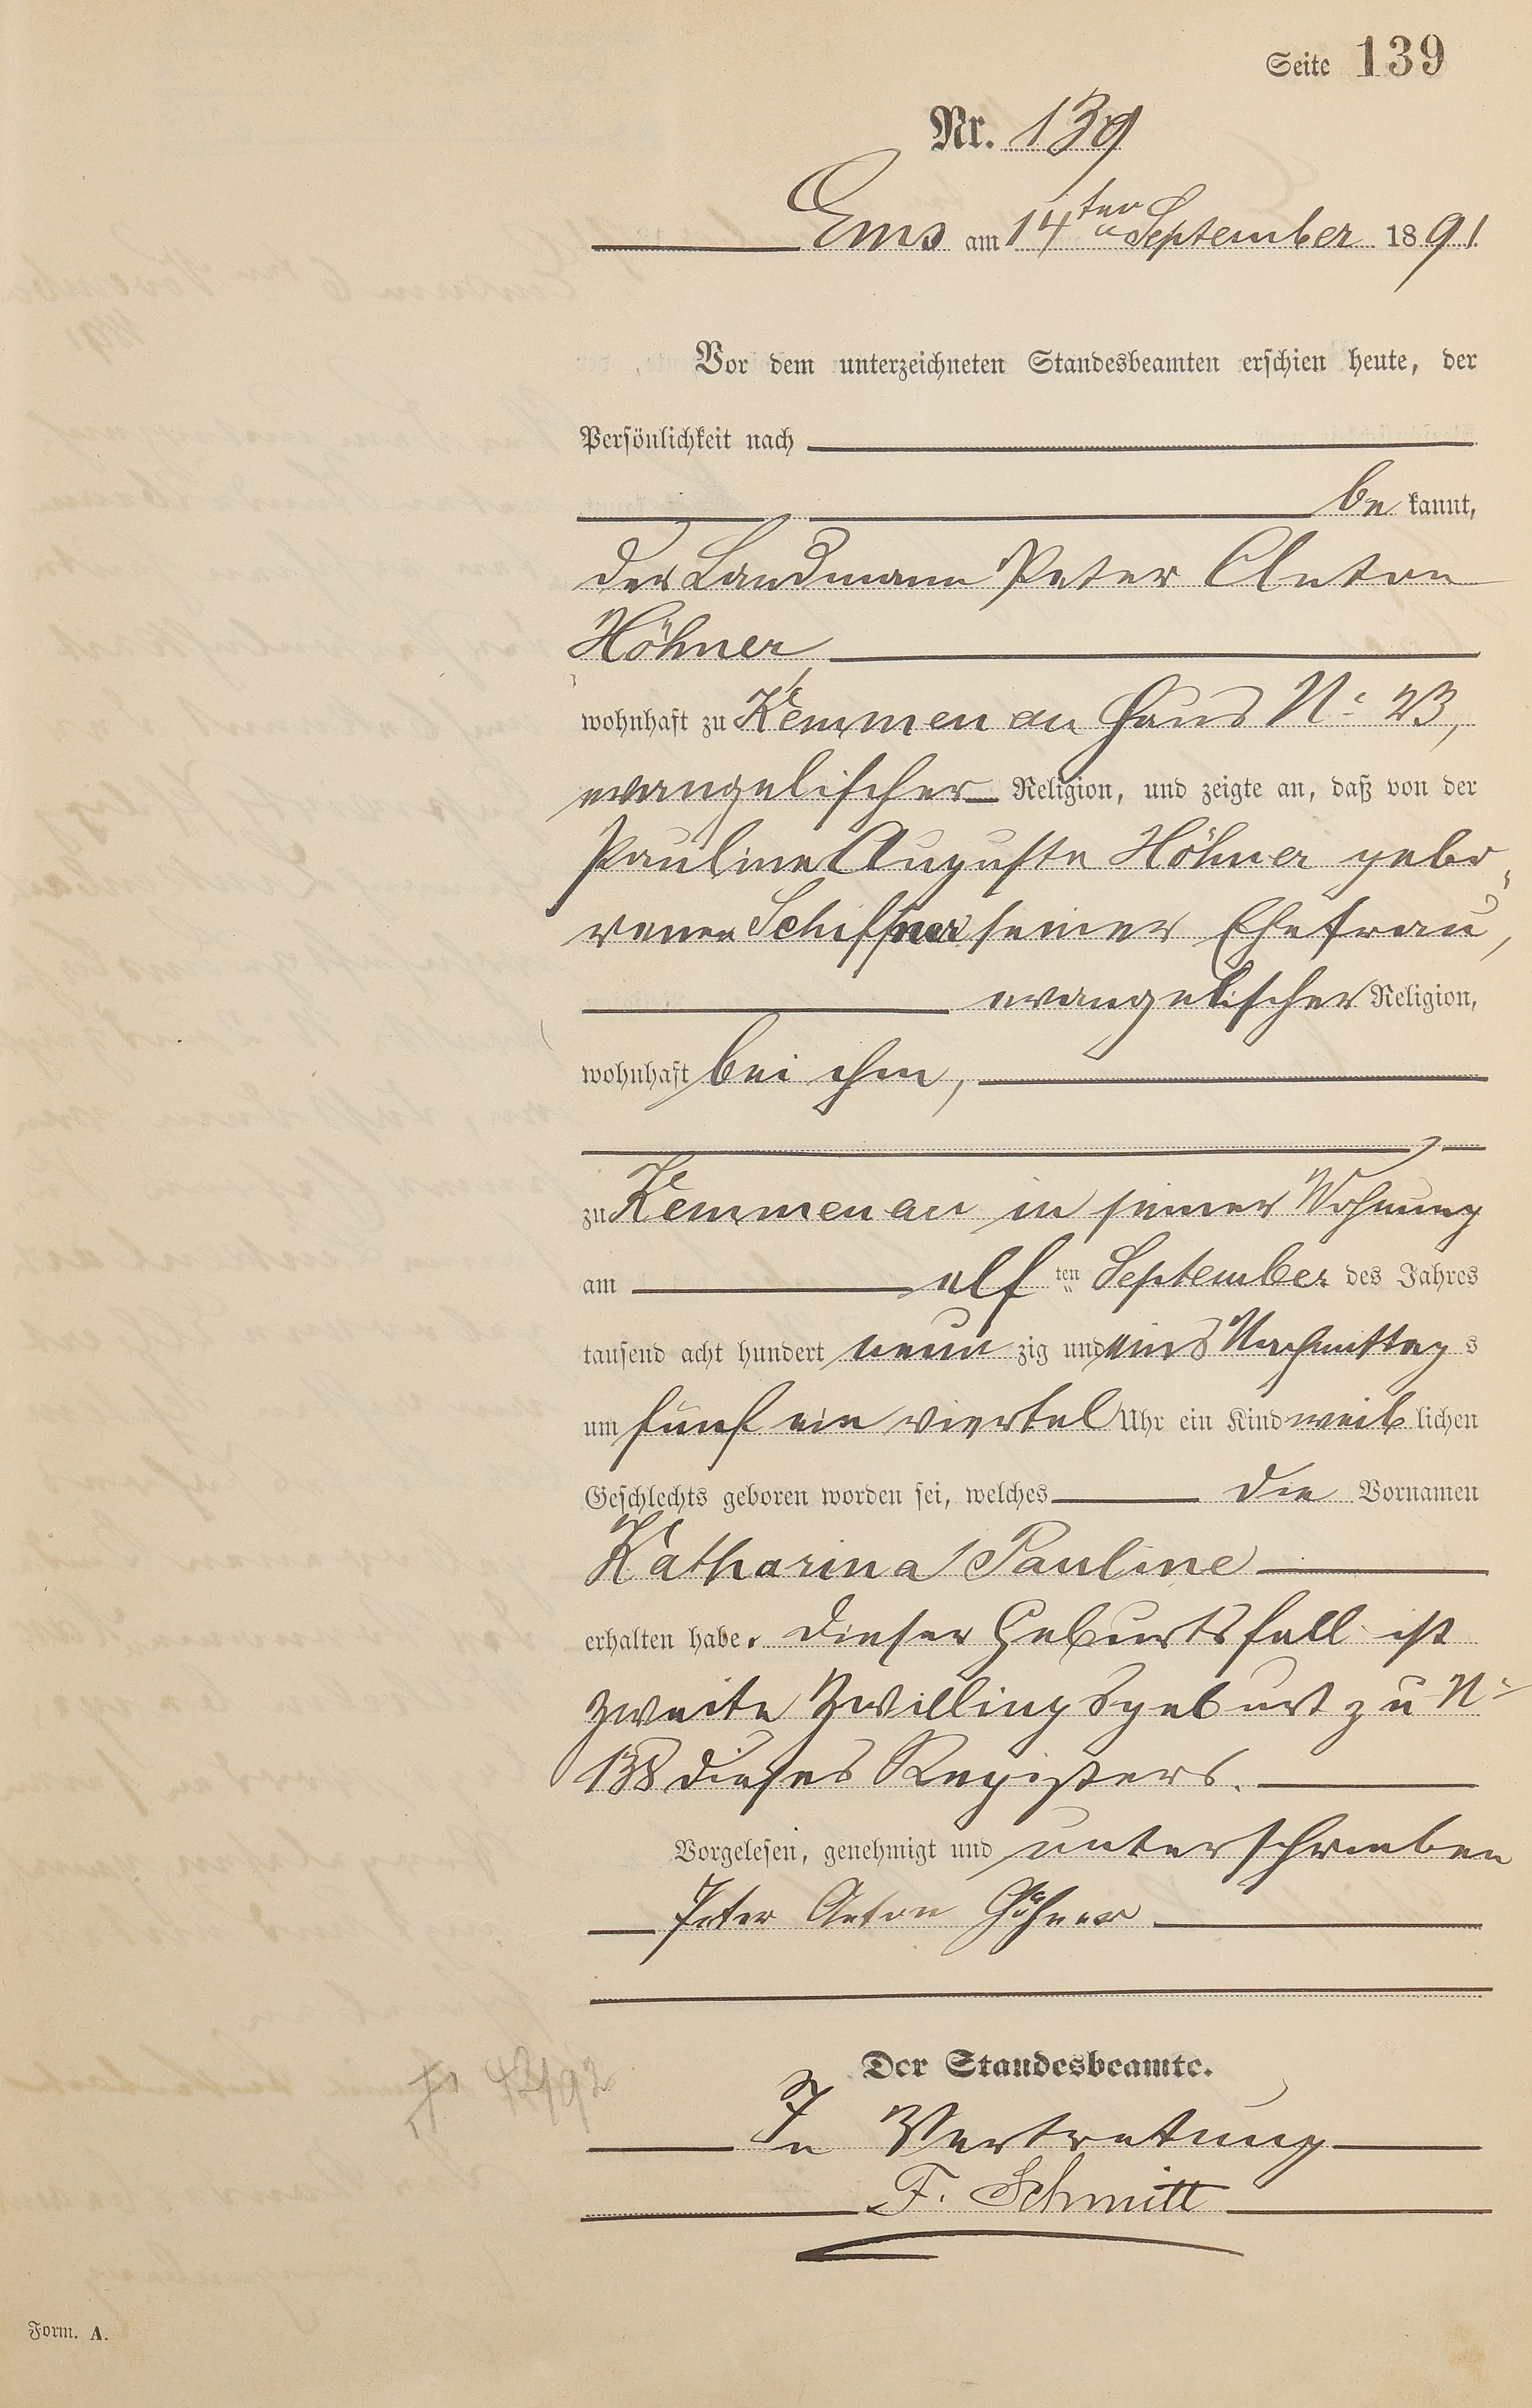 Seite 139
Nr. 139
Ems am 14ten September 1891
Vor dem unterzeichneten Standesbeamten erschien heute, der
Persönlichkeit nach
be kannt,
der Landmann Peter Anton
Höhner,
wohnhaft zu Kemmenau Haus No 23,
evangelischer Religion, und zeigte an, daß von der
Pauline Auguste Höhner gebo-
renen Schiffner seiner Ehefrau,
evangelischer Religion,
wohnhaft bei ihm,
zu Kemmenau in seiner Wohnung
am elf ten September des Jahres
tausend acht hundert neun zig und eins Nachmittag s
um fünf ein viertel Uhr ein Kind weib lichen
Geschlechts geboren worden sei, welches die Vornamen
Katharina Pauline
erhalten habe. Dieser Geburtsfall ist
zweite Zwillingsgeburt zu No
138 dieses Registers.
Vorgelesen, genehmigt und unterschrieben
Peter Anton Höhner
Der Standesbeamte.
In Vertretung
F. Schmitt
42/92
Form. A.